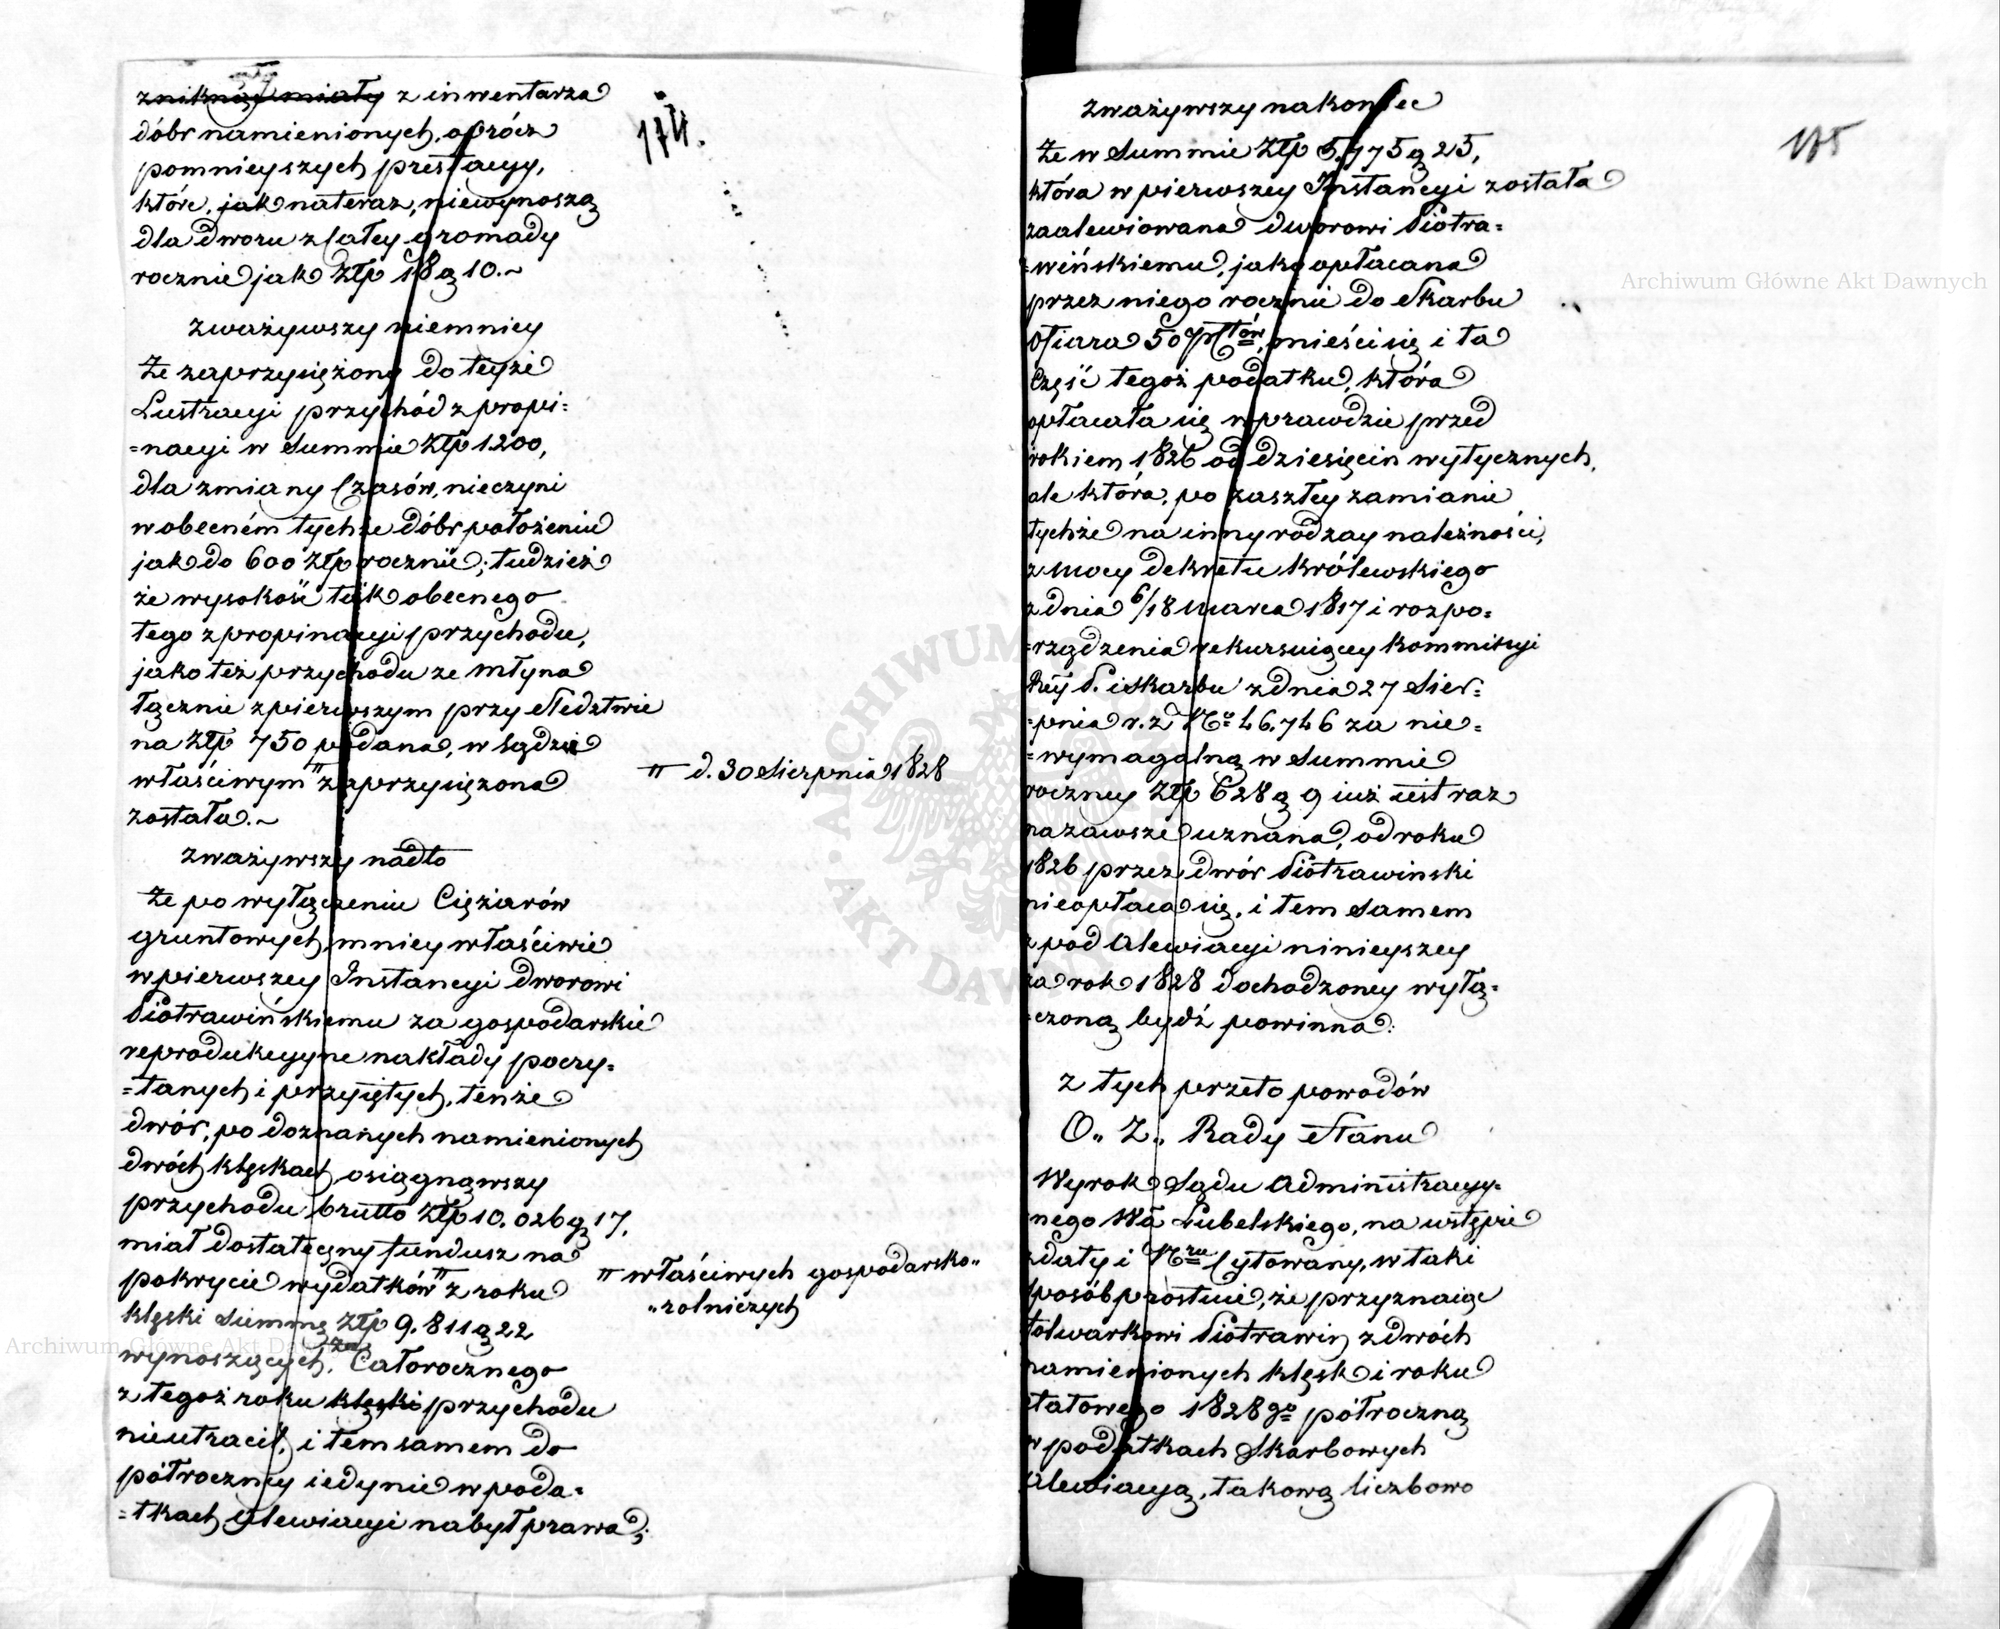 174.
zniknąć miały z inwentarza
dóbr namienionych, oprócz
pomnieyszych prestacyy,
które, jak nateraz, niewynoszą
dla dworu z całey gromady
rocznie jak Złp 18 g 10.~
Zważywszy niemniey
Że zaprzysiężony do teyże
Lustracyi przychód z propi=
=nacyi w Summie Złp 1200,
dla zmiany Czasów, nieczyni
w obecném tychże dóbr położeniu
jak do 600 Złp rocznie; tudzież
że wysokość tak obecnego
tego z propinacyi przychodu,
jako też przychodu ze młyna
łącznie z pierwszym przy Śledztwie
na Złp 750 podana, w Sądzie
właściwym " zaprzysiężona
została.~
" d. 30 Sierpnia 1828
Zważywszy nadto
Że po wyłączeniu Ciężarów
gruntowych, mniey właściwie
w pierwszey Instancyi dworowi
Piotrawińskiemu za gospodarskie
reprodukcyyne nakłady poczy=
=tanych i przyiętych, tenże
dwór, po doznanych namienionych
dwóch klęskach, osiągnąwszy
przychodu brutto Złp 10.026 g 17,
miał dostateczny fundusz na
pokrycie wydatków " z roku
klęski Summę Złp 9.811 g 22
wynoszących, Całorocznego
z tegoż roku klęski przychodu
nieutracił, i tem samem do
półroczney iedynie w poda=
=tkach Alewiacyi nabył prawa;
" właściwych gospodarsko"
"rolniczych
175
Zważywszy nakoniec
Że w Summie Złp 5.775 g 25,
która w pierwszey Instancyi została
zaalewiowana dworowi Piotra=
=wińskiemu, jako opłacana
przez niego rocznie do Skarbu
Ofiara 50 %tów, mieści się i ta
Część tegoż podatku, która
opłacała się wprawdzie przed
rokiem 1826 od dziesięcin wytycznych,
ale która, po zaszłey zamianie
tychże na inny rodzay należności,
z mocy dekretu królewskiego
z dnia 6/18 Marca 1817 i rozpo=
=rządzenia rekursuiącey Kommissyi
Rey P. i Skarbu z dnia 27 Sier=
=pnia r. z No 46.746 za nie=
=wymagalną w Summie
roczney Złp 628 g 9 iuż iest raz
na zawsze uznana, od roku
1826 przez dwór Piotrawinski
nieopłaca się, i tem samem
z pod Alewiacyi ninieyszey
za rok 1828 dochodzoney wyłą=
=czoną bydź powinna:
Z tych przeto powodów
O. Z. Rady Stanu
Wyrok Sądu Administracyy=
nego Wa Lubelskiego, na wstępie
z daty i Nru Cytowany, w taki
sposób prostuie, że przyznaiąc
folwarkowi Piotrawin z dwóch
namienionych klęsk i roku
Etatowego 1828go półroczną
w podatkach Skarbowych
Alewiacyą, takową liczbowo
Archiwum Główne Akt Dawnych
Archiwum Główne Akt Dawnych